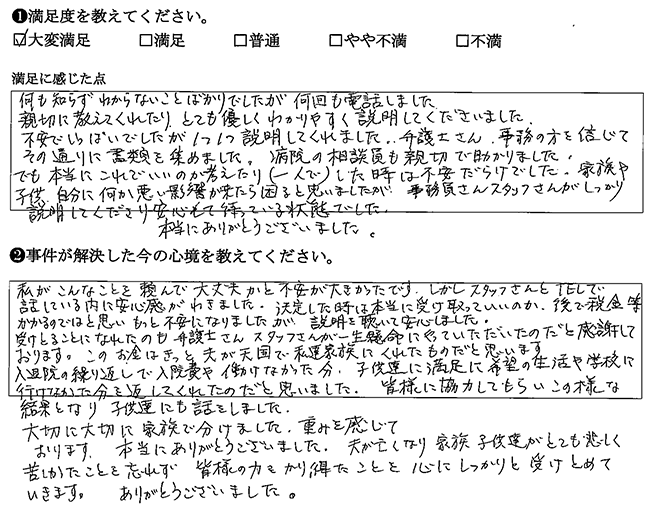 ❶満足度を教えてください。
☑大変満足 □満足 □普通 □やや不満 □不満
満足に感じた点
何も知らず わからないことばかりでしたが 何回も電話しました
親切に教えてくれたり とても優しくわかりやすく 説明してくださいました.
不安でいっぱいでしたが 1つ1つ 説明してくれました.. 弁護士さん、事務の方を信じて
その通りに 書類を集めました。 病院の相談員も親切で助かりました.
でも本当にこれでいいのか考えたり (一人で)した時は不安だらけでした。 家族や
子供、自分に何か悪い影響が来たら困ると思いましたが 事務員さんスタッフさんがしっかり
説明してくださり 安心して待っている状態でした.
本当にありがとうございました。
❷事件が解決した今の心境を教えてください。
私が こんなことを 頼んで 大丈夫かと不安が大きかったです. しかしスタッフさんとTELで
話している内に安心感がわきました. 決定した時は本当に受け取っていいのか. 後で税金等
かかるのではと思い もっと不安になりましたが 説明を聴いて安心しました.
受けとることになれたのも 弁護士さん スタッフさんが一生懸命にやっていただいたのだと感謝して
おります。 このお金はきっと 夫が天国で 私達家族に くれたものだと思います
入退院の繰り返しで入院費や 働けなかった分. 子供達に満足に 希望の生活や学校に
行けなかった分を返してくれたのだと思いました. 皆様に協力してもらい この様な
結果となり 子供達にも話をしました.
大切に大切に 家族で分けました. 重みを感じて
おります. 本当にありがとうございました. 夫が亡くなり 家族 子供達がとても悲しく
苦しかったことを忘れず 皆様の力をかり得たことを 心にしっかりと受けとめて
いきます。 ありがとうございました。